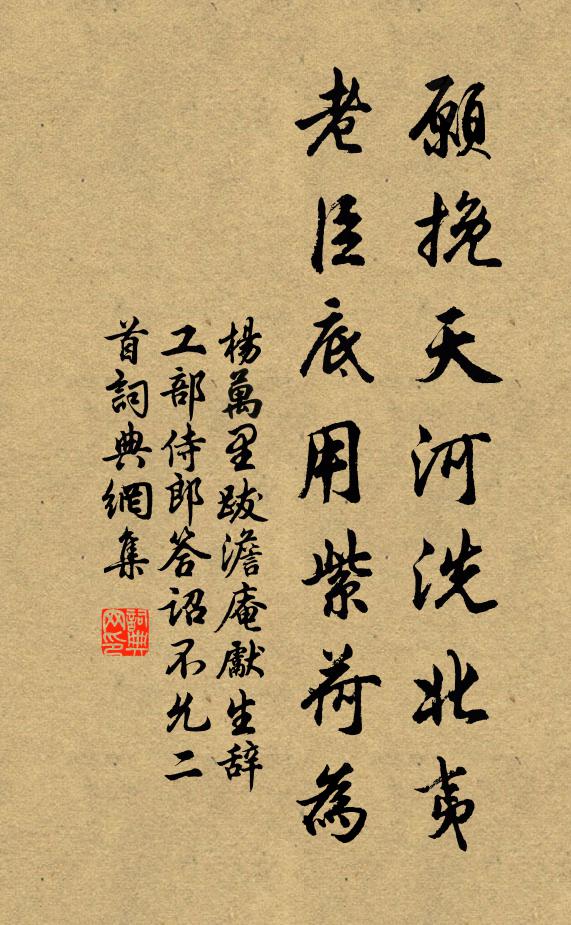 願挽天河洗北夷
老臣底用紫荷為
楊萬里跋澹庵獻生辞
工部侍郎答詔不允二
首詞典網集
詞典网印